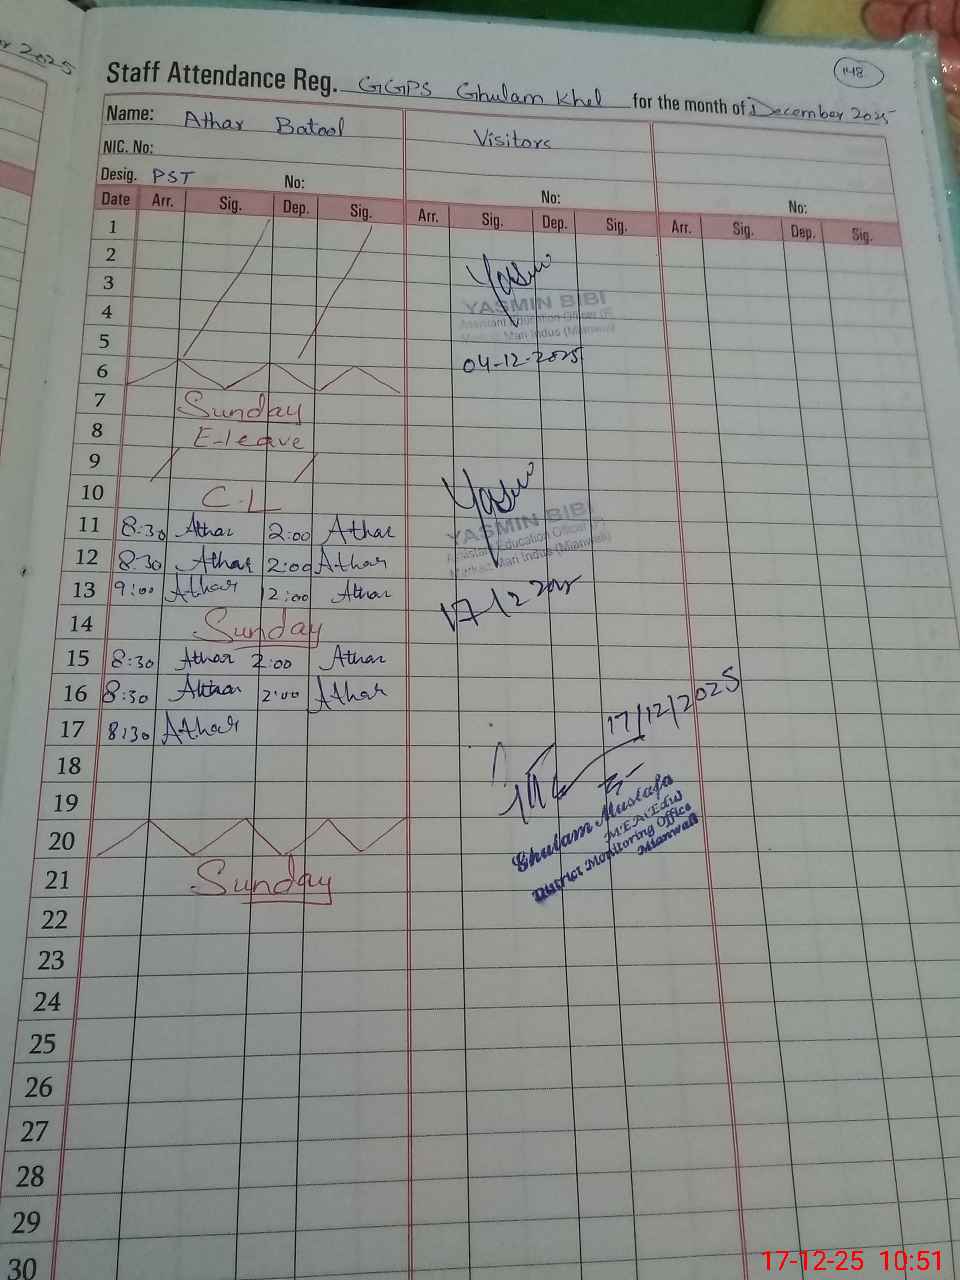 2025
148
Staff Attendance Reg. GGPS Ghulam Khel for the month of December 2025
Name: Athar Batool Visitors
NIC. No:
Desig. PST No: No: No:
Date Arr. Sig. Dep. Sig. Arr. Sig. Dep. Sig. Arr. Sig. Dep. Sig.
1
2
3
YASMIN BIBI
4
Assistant Education Officer
5
Mari Indus (Mianwali)
04-12-2025
6
7 Sunday
8 E-leave
9
10 C-L
11 8:30 Athar 2:00 Athar
YASMIN BIBI
12 8:30 Athar 2:00 Athar
Assistant Education Officer
Markaz Mari Indus (Mianwali)
13 9:00 Athar 12:00 Athar
17-12-2025
14 Sunday
15 8:30 Athar 2:00 Athar
16 8:30 Athar 2:00 Athar
17 8:30 Athar
17/12/2025
18
19
Ghulam Mustafa
M.E.A (Edu)
20
District Monitoring Office
Mianwali
21 Sunday
22
23
24
25
26
27
28
29
30
17-12-25 10:51